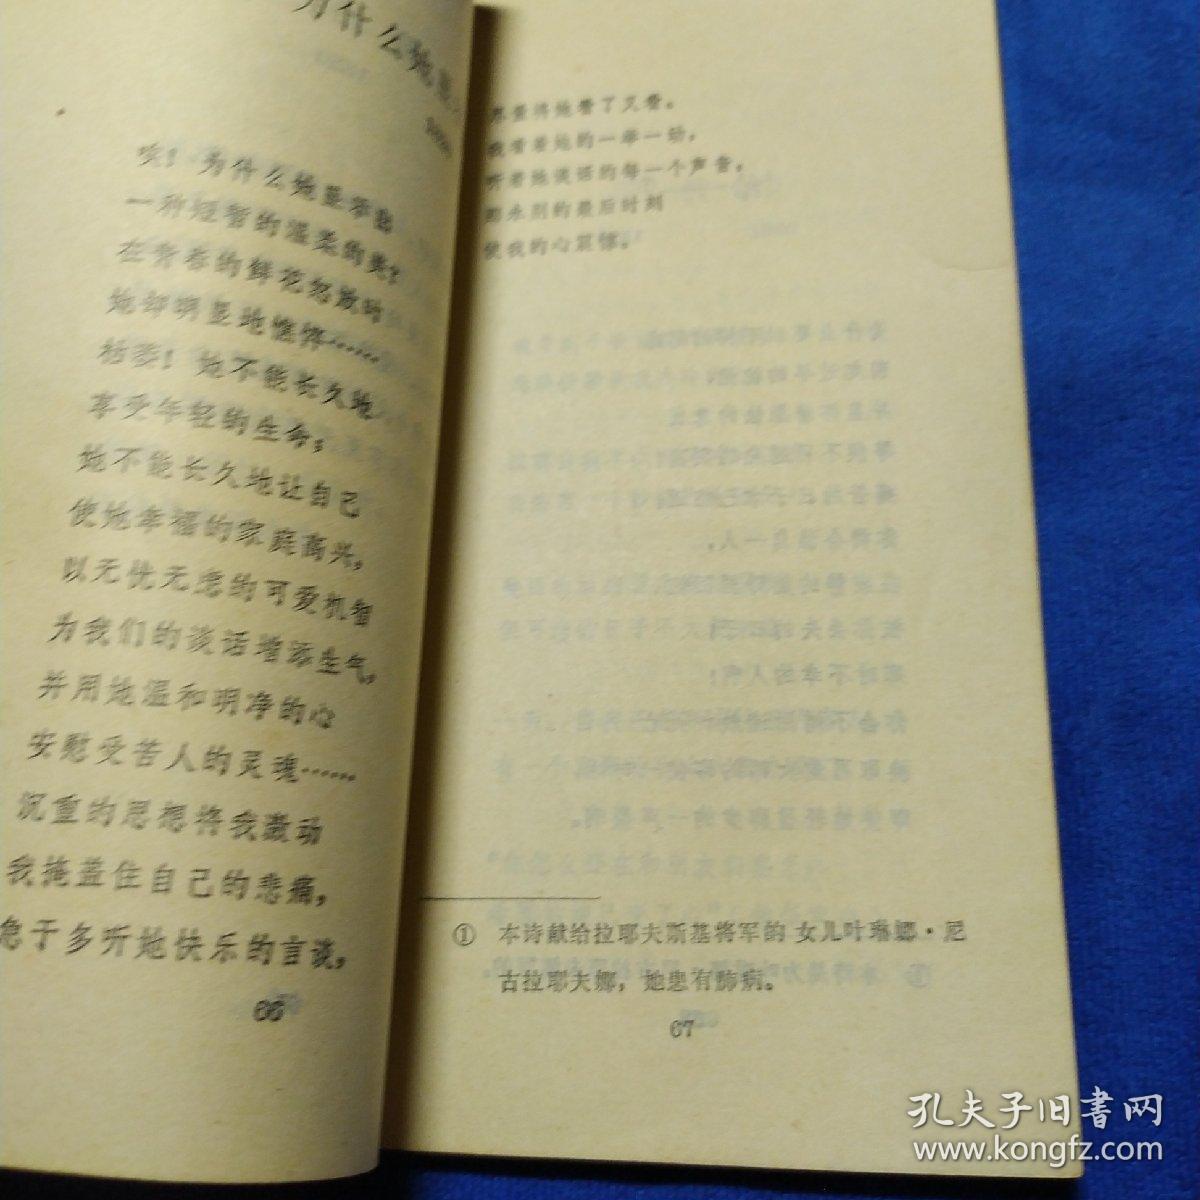 为什么她显
唉！为什么她显示出
一种短暂的温柔的美？
在青春的鲜花怒放时
她却明显地憔悴……
枯萎！她不能长久地
享受年轻的生命；
她不能长久地让自己
使她幸福的家庭高兴，
以无忧无虑的可爱机智
为我们的谈话增添生气，
并用她温和明净的心
安慰受苦人的灵魂……
沉重的思想将我激动
我掩盖住自己的悲痛，
急于多听她快乐的言谈，
66
尽量将她看了又看。
我看着她的一举一动，
听着她谈话的每一个声音，
即永别的最后时刻
使我的心震惊。
① 本诗献给拉耶夫斯基将军的女儿叶琳娜·尼
古拉耶夫娜，她患有肺病。
67
孔夫子旧书网
www.kongfz.com